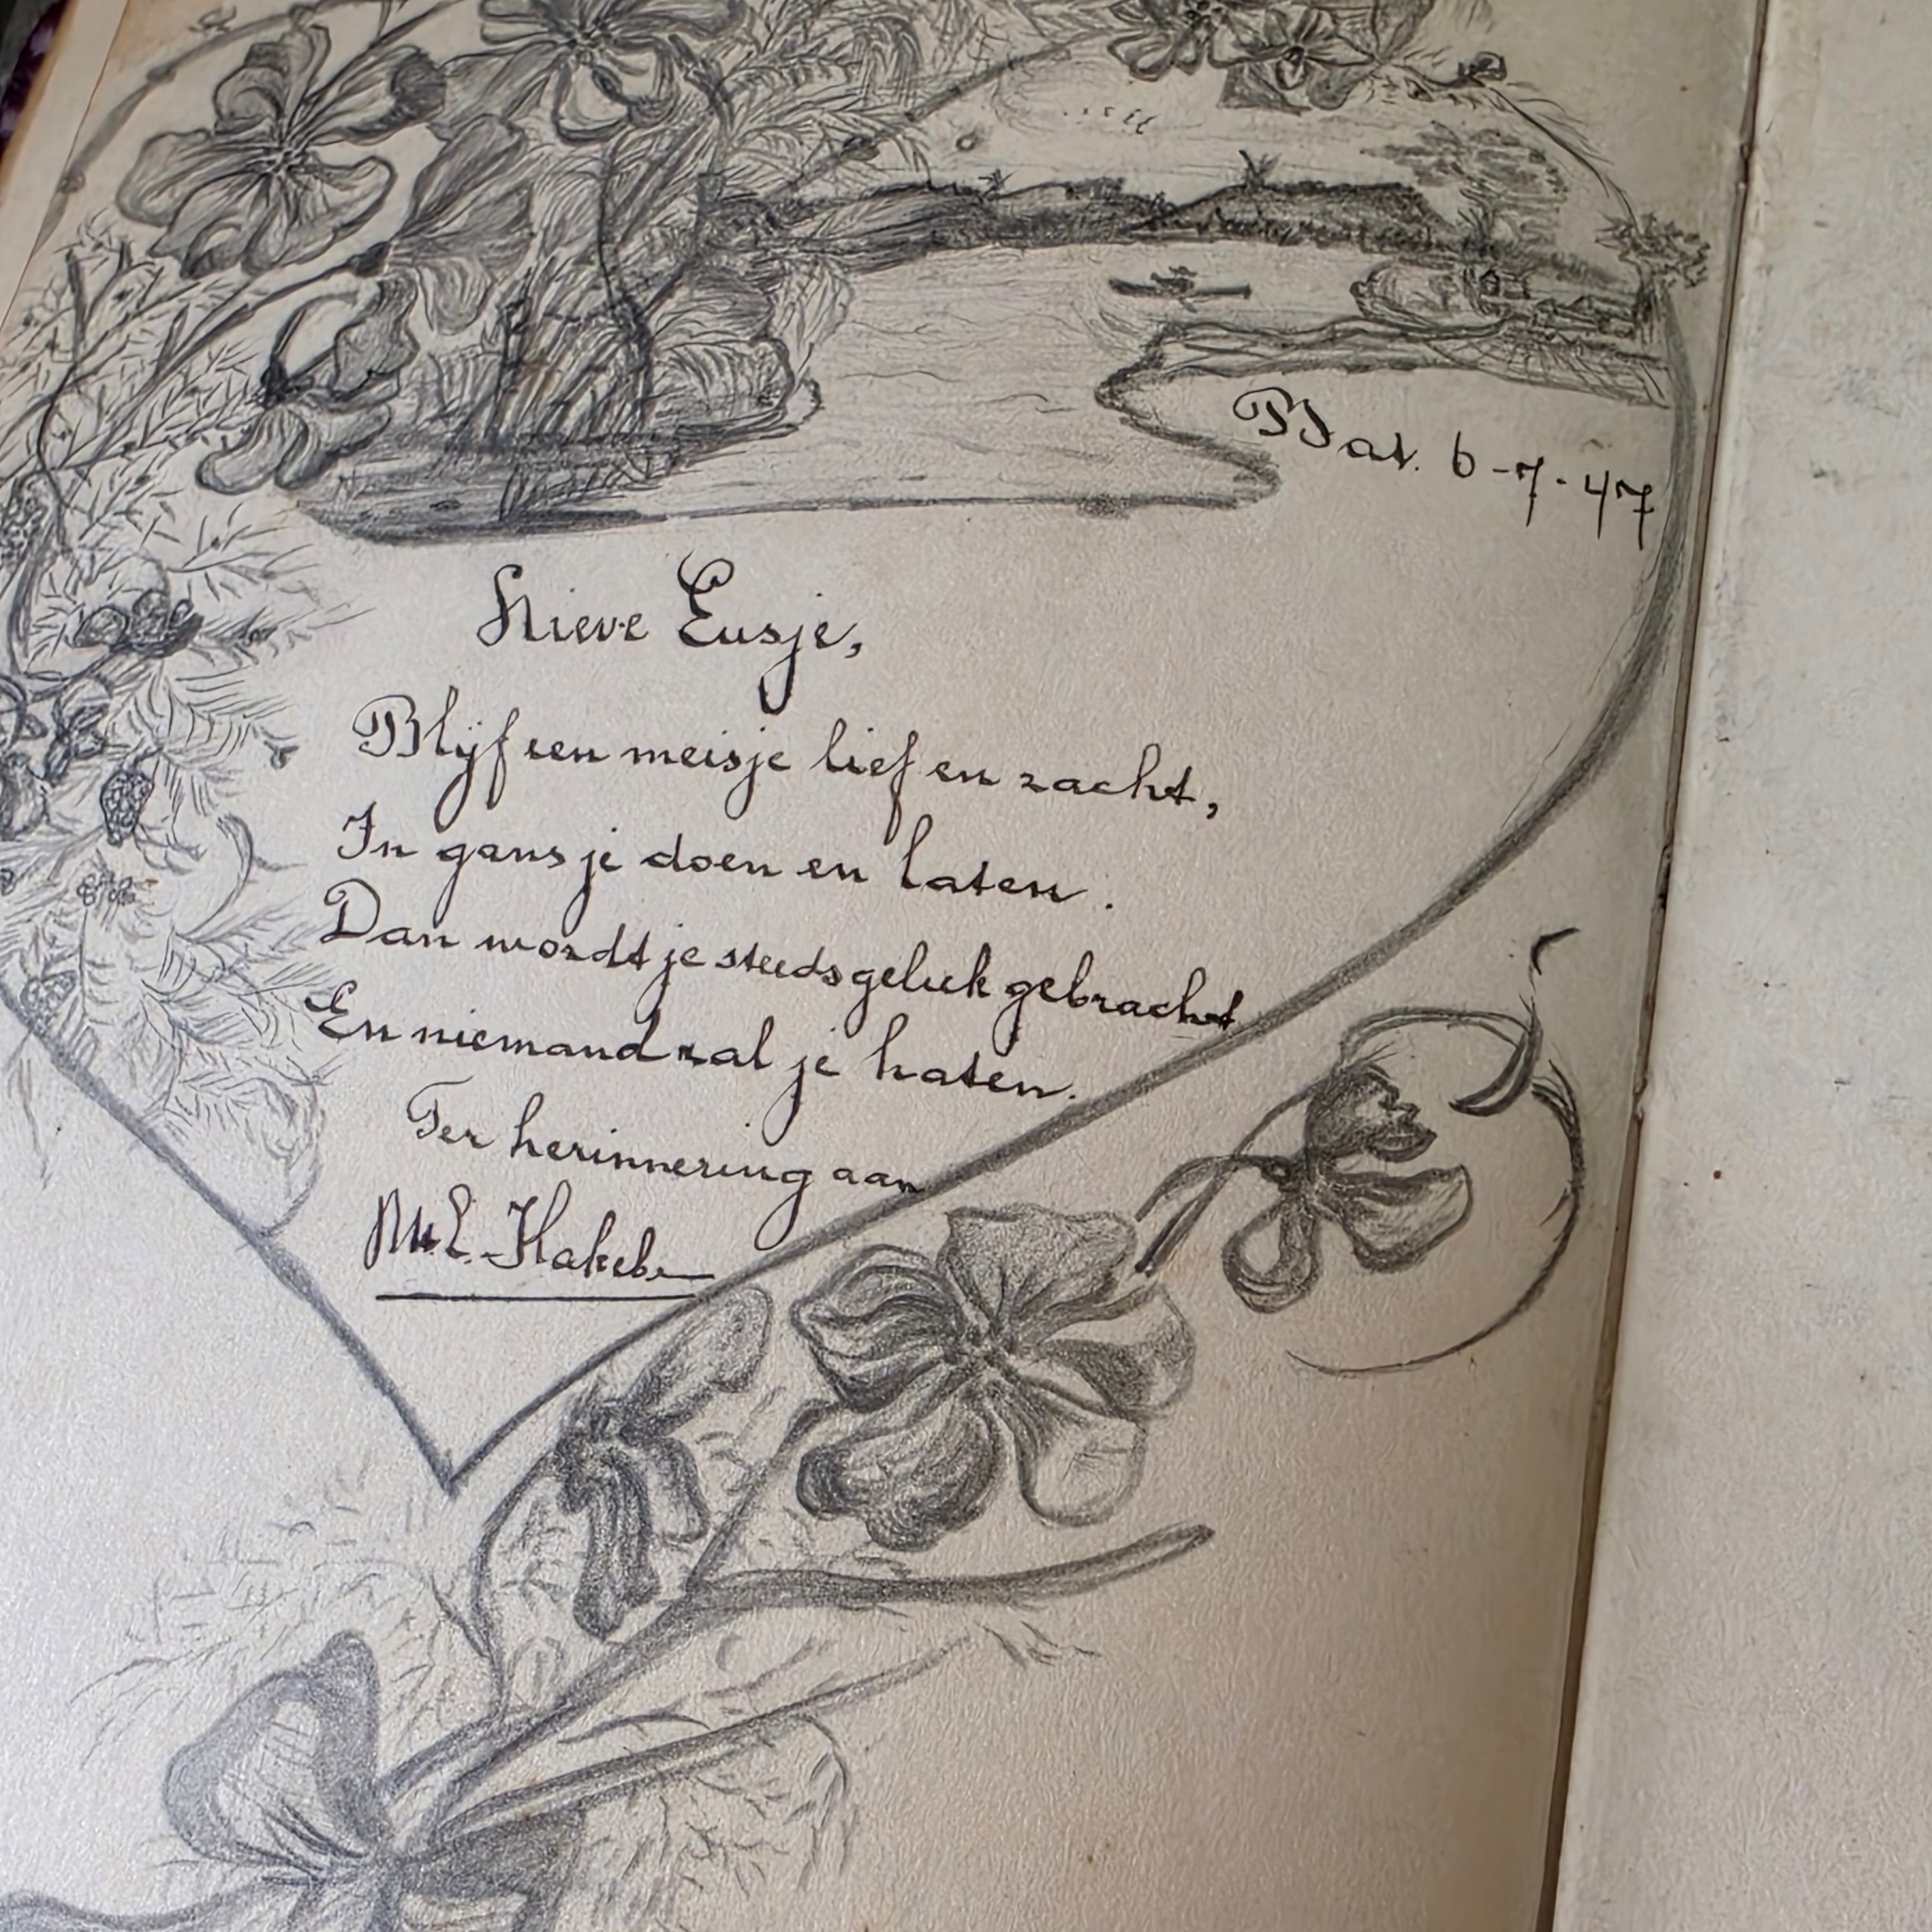 Bat. 6-7-47
Lieve Eusje,
Blijf een meisje lief en zacht,
In gans je doen en laten.
Dan wordt je steeds geluk gebracht
En niemand zal je haten.
Ter herinnering aan
M.E.